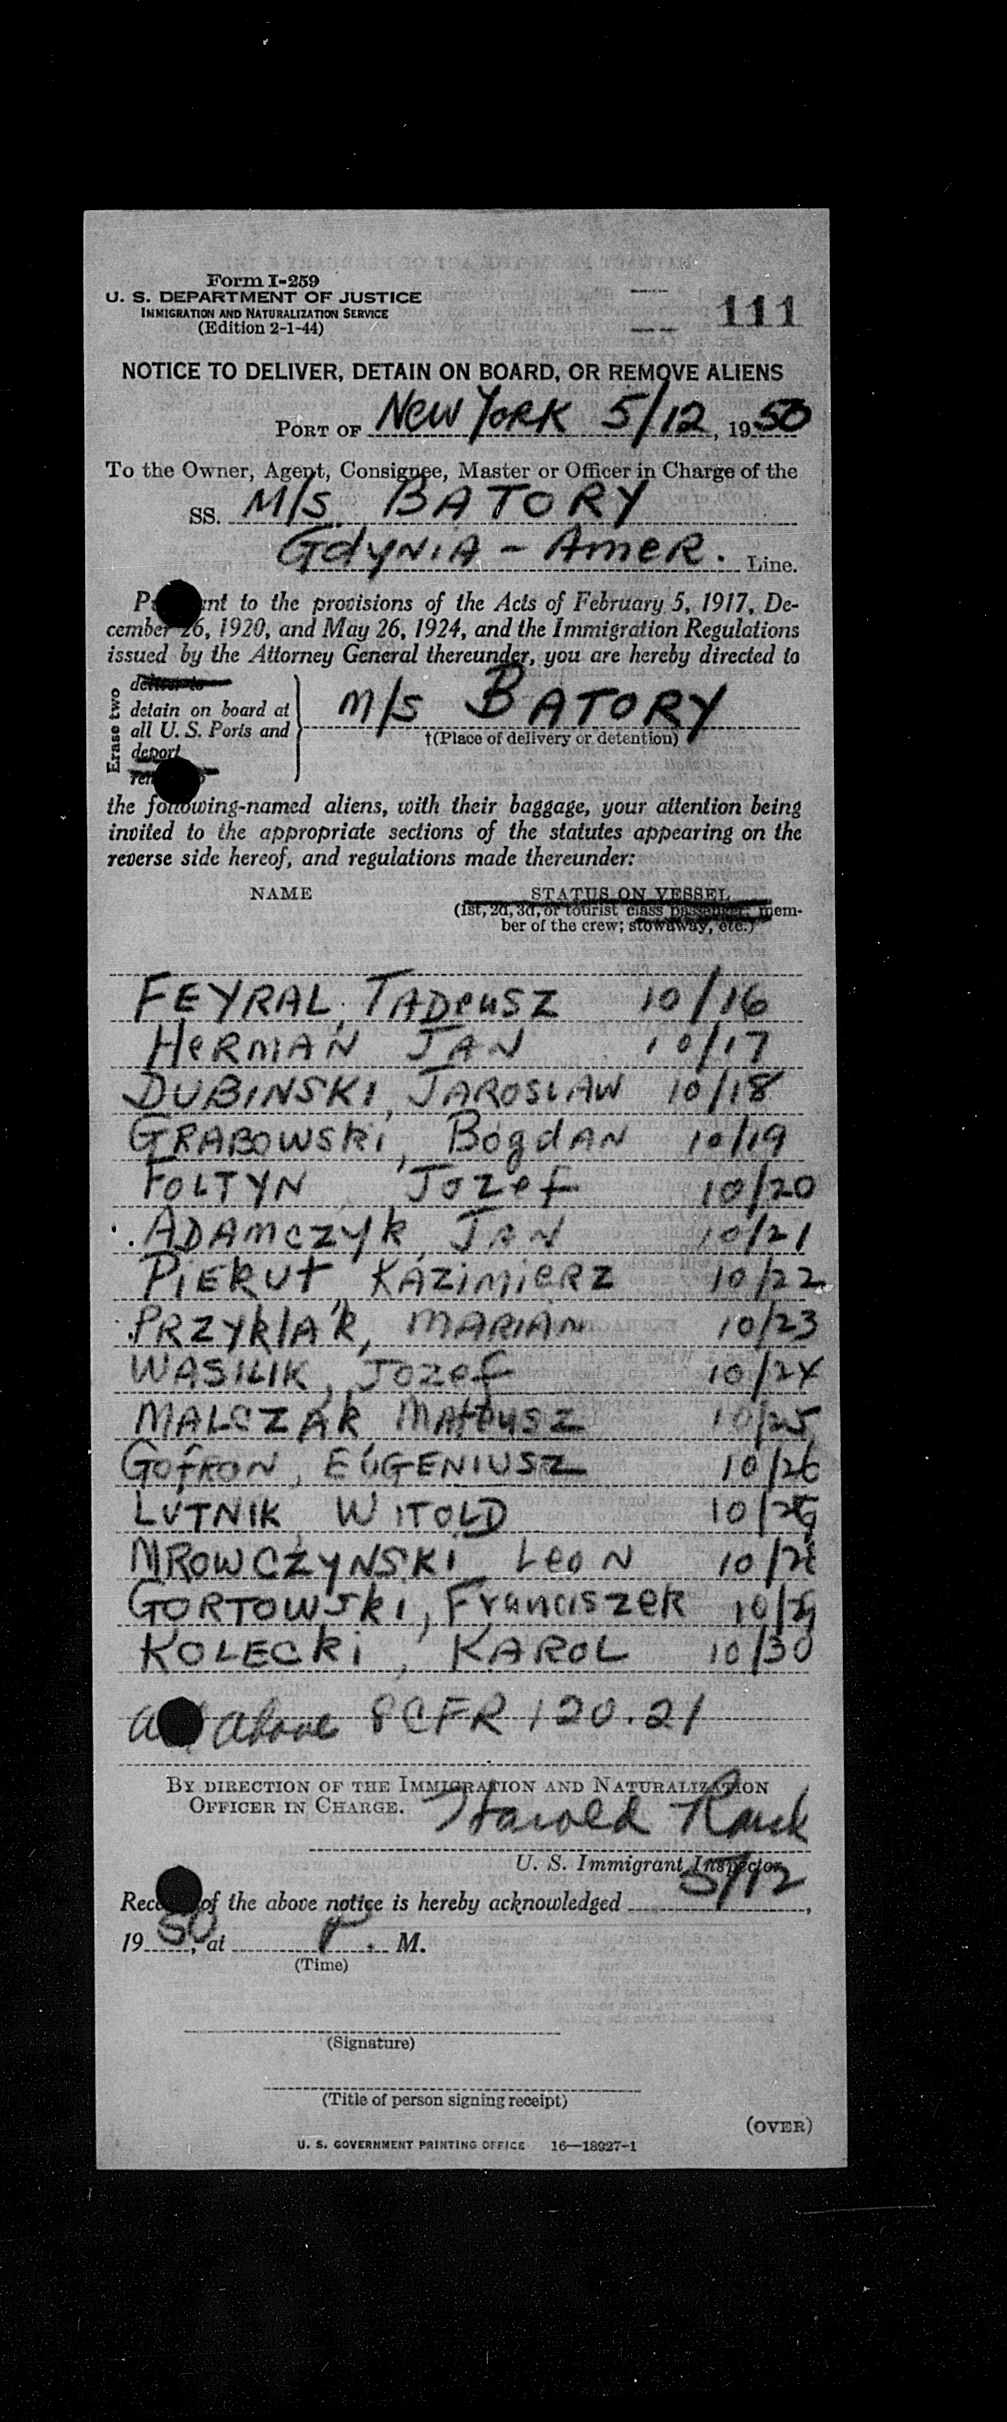 Form I-259
U. S. DEPARTMENT OF JUSTICE
IMMIGRATION AND NATURALIZATION SERVICE
(Edition 2-1-44)
111
NOTICE TO DELIVER, DETAIN ON BOARD, OR REMOVE ALIENS
PORT OF NEW YORK 5/12, 1950
To the Owner, Agent, Consignee, Master or Officer in Charge of the
SS. M/s BATORY
GdYNIA - AMER. Line.
to the provisions of the Acts of February 5, 1917, De-
cember 26, 1920, and May 26, 1924, and the Immigration Regulations
issued by the Attorney General thereunder, you are hereby directed to
Erase two
deliver to
detain on board at
all U. S. Ports and
deport
M/s BATORY
†(Place of delivery or detention)
the following-named aliens, with their baggage, your attention being
invited to the appropriate sections of the statutes appearing on the
reverse side hereof, and regulations made thereunder:
NAME STATUS ON VESSEL
(1st, 2d, 3d, or tourist class passenger, mem-
ber of the crew; stowaway, etc.)
FEYRAL, TADEUSZ 10/16
HERMAN JAN 10/17
DUBINSKI, JAROSLAW 10/18
GRABOWSKI, BogdAN 10/19
FOLTYN Jozef 10/20
ADAMCZYK, JAN 10/21
PIEKUT KAZIMIERZ 10/22
PRZYKLAK, MARIAN 10/23
WASILIK, Jozef 10/24
MALCZAK MATEUSZ 10/25
GOFRON, EUGENIUSZ 10/26
LUTNIK WITOLD 10/
MROWCZYNSKI LEON 10/28
GORTOWSKI, Franciszek 10/29
KOLECKI, KAROL 10/30
above 8CFR 120.21
BY DIRECTION OF THE IMMIGRATION AND NATURALIZATION
OFFICER IN CHARGE. Harold
U. S. Immigrant Inspector
of the above notice is hereby acknowledged 5/12,
1950, at P. M.
(Time)
(Signature)
(Title of person signing receipt)
(OVER)
U. S. GOVERNMENT PRINTING OFFICE 16—18927-1